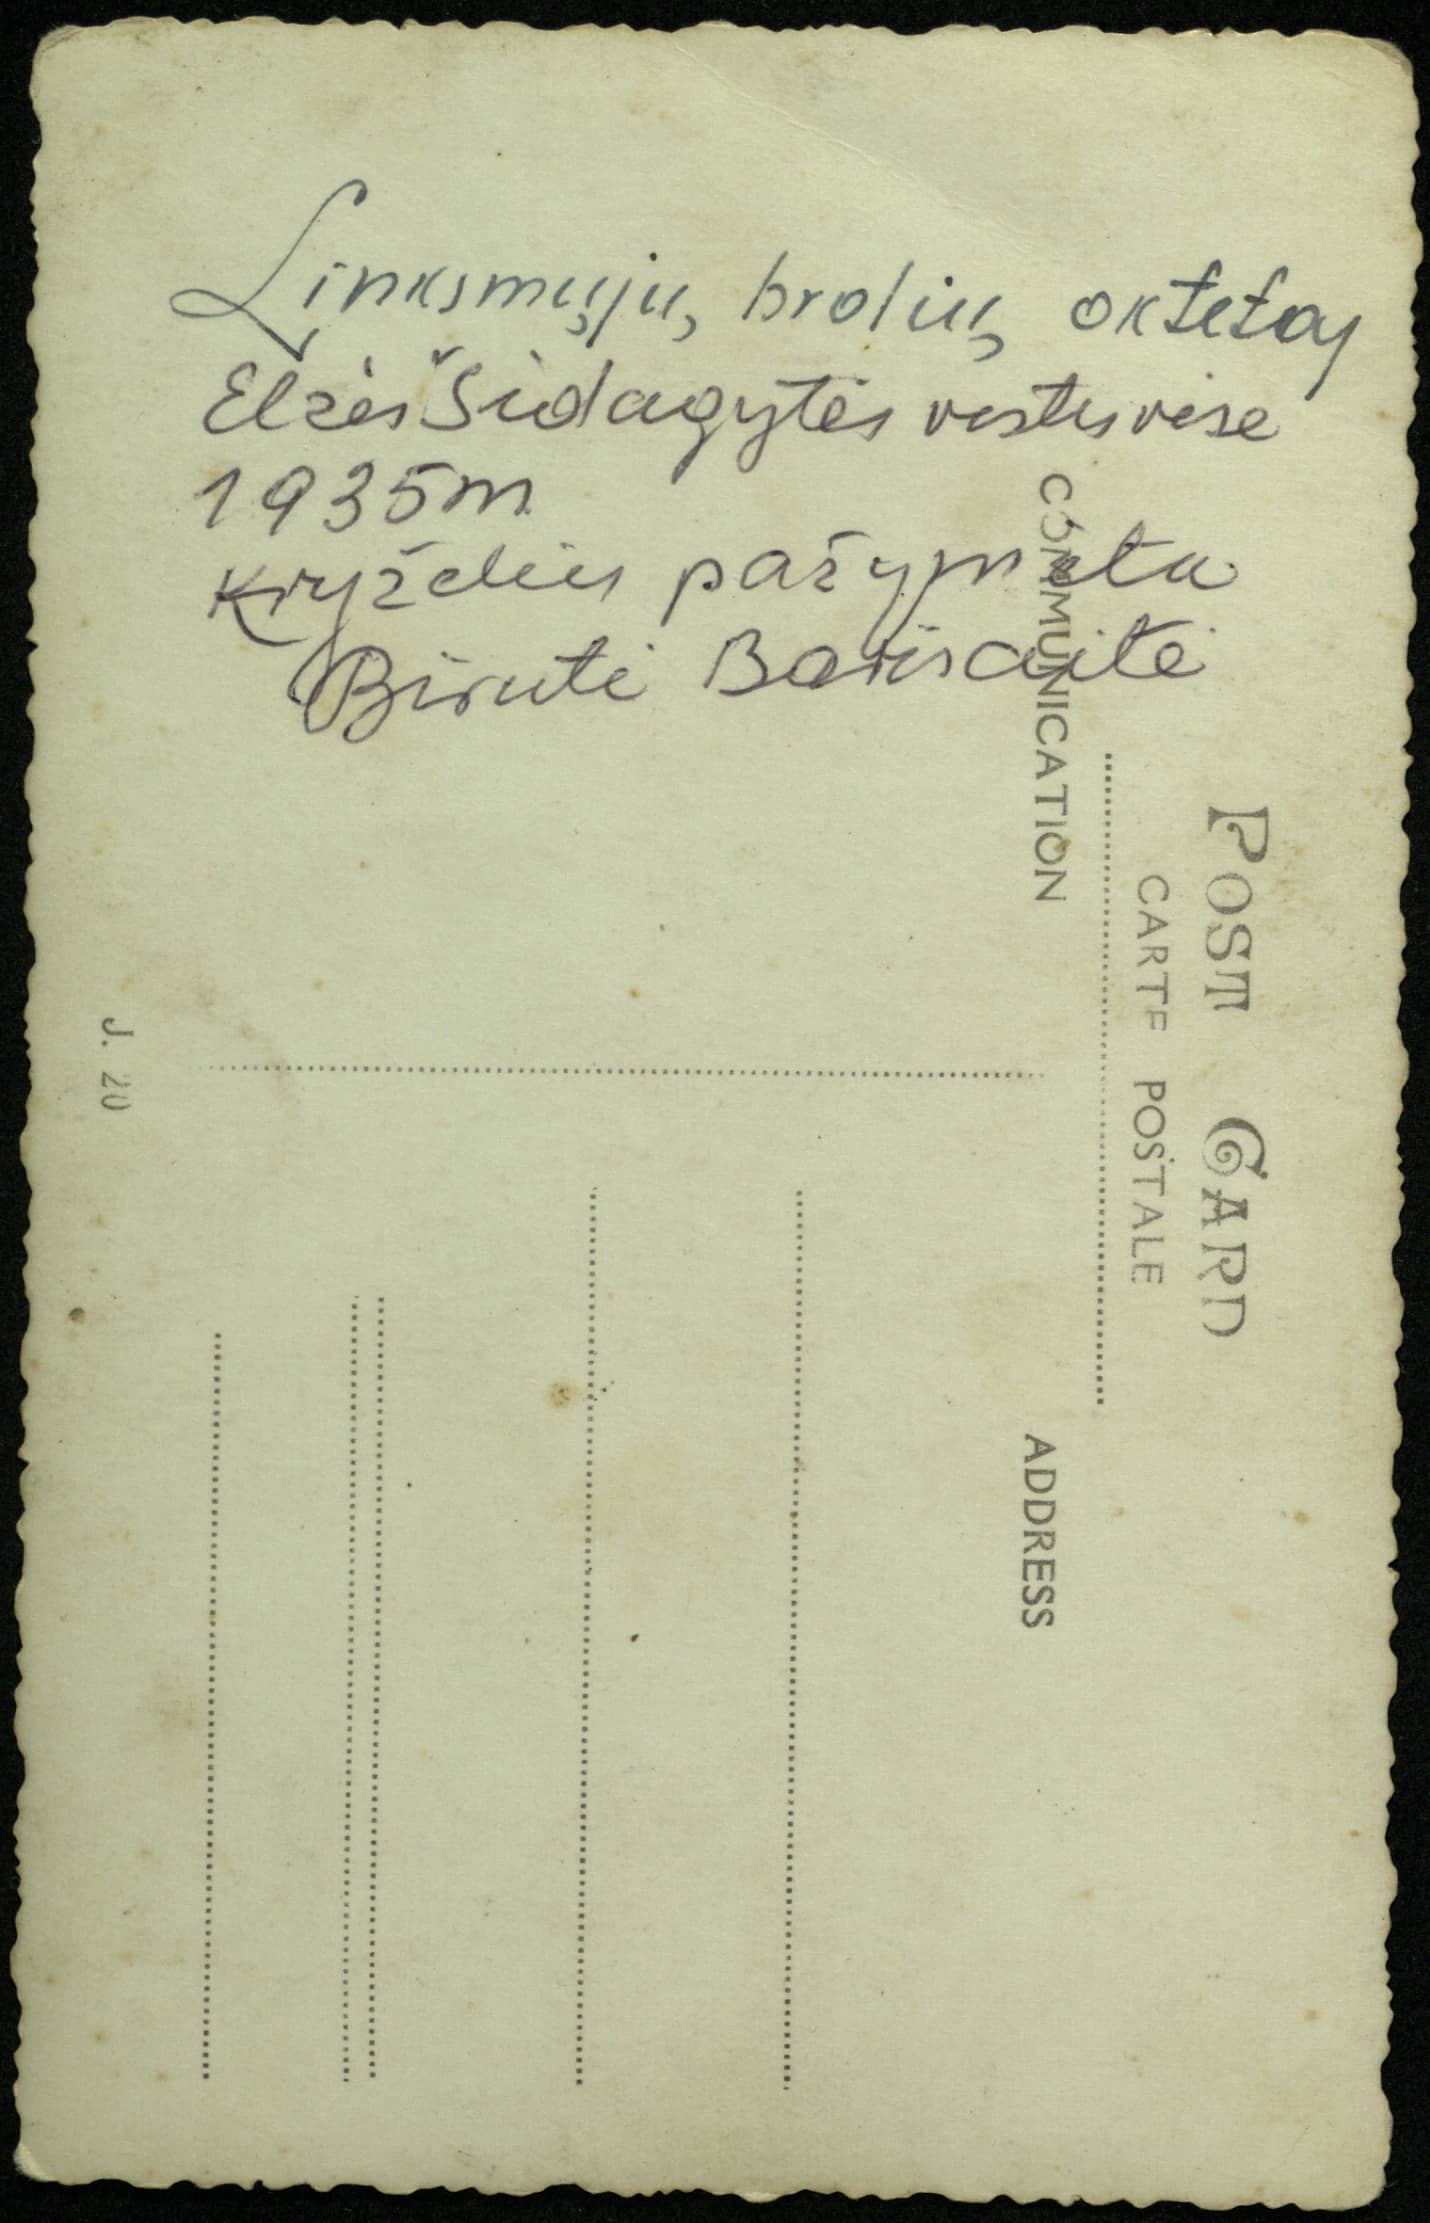 Linksmųjų brolių oktetas
Elzės Šidagytės vestuvėse
1935m
Kryželiu pažymėta
Birutė Barisaitė
POST CARD
CARTE POSTALE
COMMUNICATION
ADDRESS
J. 20